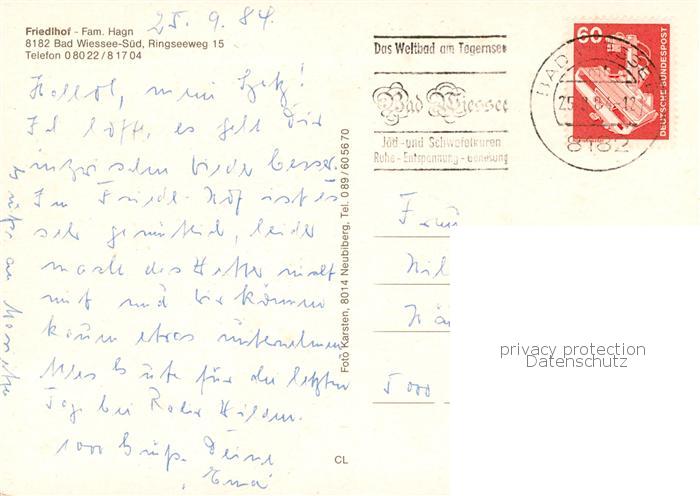 25. 9. 84.
Friedlhof - Fam. Hagn
8182 Bad Wiessee-Süd, Ringseeweg 15
Telefon 0 80 22 / 8 17 04
Hallo, mein Spatz!
Ich hoffe, es geht Dir
inzwischen wieder besser.
Im Friedl-Hof ist es
sehr gemütlich, leider
macht das Wetter nicht
mit und wir können
kaum etwas unternehmen
Alles Gute für die letzten
Tage bei
1000 Grüße Deine
Grüße an
Foto Karsten, 8014 Neubiberg, Tel. 0 89 / 60 56 70
CL
Das Weltbad am Tegernsee
Bad Wiessee
Jod- und Schwefelkuren
Ruhe - Entspannung - Genesung
BAD WIESSEE
8182
60
DEUTSCHE BUNDESPOST
5000
privacy protection
Datenschutz